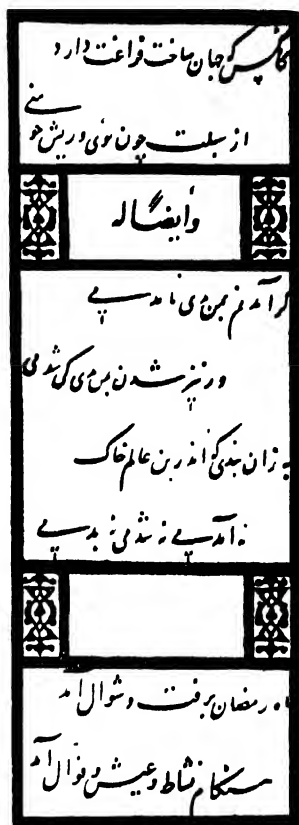 کانکس که جهان ساخت فراغت دارد
از سبلت چون توئی و ریش چو منی
وایضاً له
گر آمدنم بمن بدی نامدمی
ور نیز شدن بمن بدی کی شدمی
به زان نبدی که اندرین عالم خاک
نه آمدمی نه شدمی نه بدمی
ماه رمضان برفت و شوال آمد
هنگام نشاط و عیش و قوال آمد